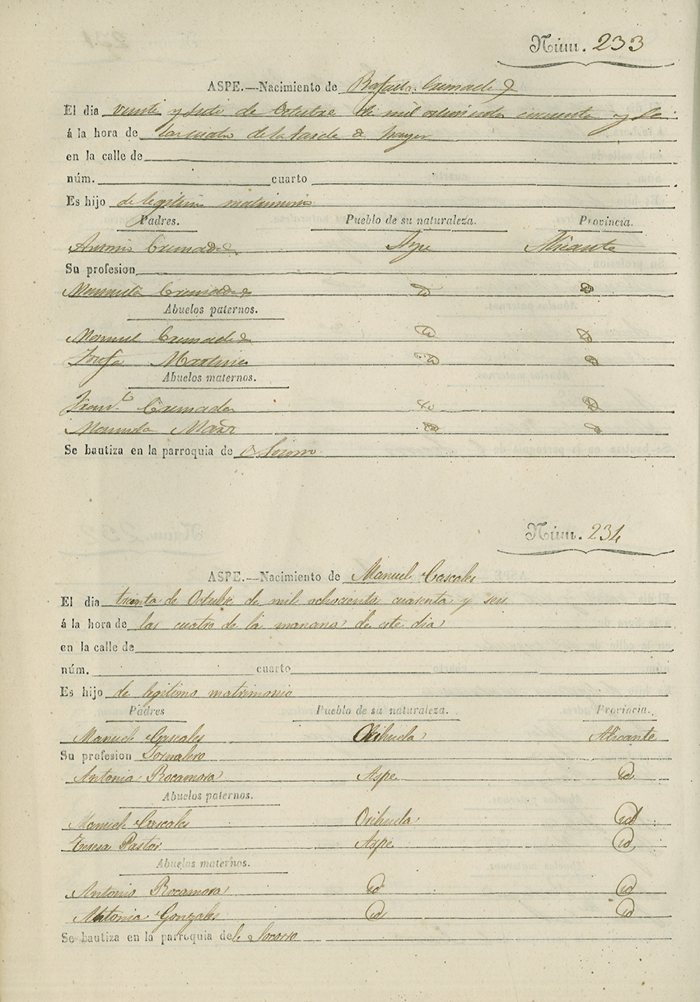 Núm. 233
ASPE.—Nacimiento de Rafaela Cremades
El dia veinte y siete de Octubre de mil ochocientos cincuenta y se
á la hora de las cuatro de la tarde de ayer
en la calle de
núm. cuarto
Es hijo de legitimo matrimonio
Padres. Pueblo de su naturaleza. Provincia.
Antonio Cremades Aspe Alicante
Su profesion
Manuela Cremades id id
Abuelos paternos.
Manuel Cremades id id
Josefa Martinez id id
Abuelos maternos.
Fran.co Cremades id id
Manuela id id
Se bautiza en la parroquia de Socorro
Núm. 234
ASPE.—Nacimiento de Manuel Cascales
El dia treinta de Octubre de mil ochocientos cuarenta y seis
á la hora de las cuatro de la mañana de este dia
en la calle de
núm. cuarto
Es hijo de legitimo matrimonio
Padres Pueblo de su naturaleza. Provincia.
Manuel Cascales Orihuela Alicante
Su profesion Jornalero
Antonia Rocamora Aspe id
Abuelos paternos.
Manuel Cascales Orihuela id
Teresa Pastor Aspe id
Abuelos maternos.
Antonio Rocamora id id
Antonia Gonzales id id
Se bautiza en la parroquia del Socorro